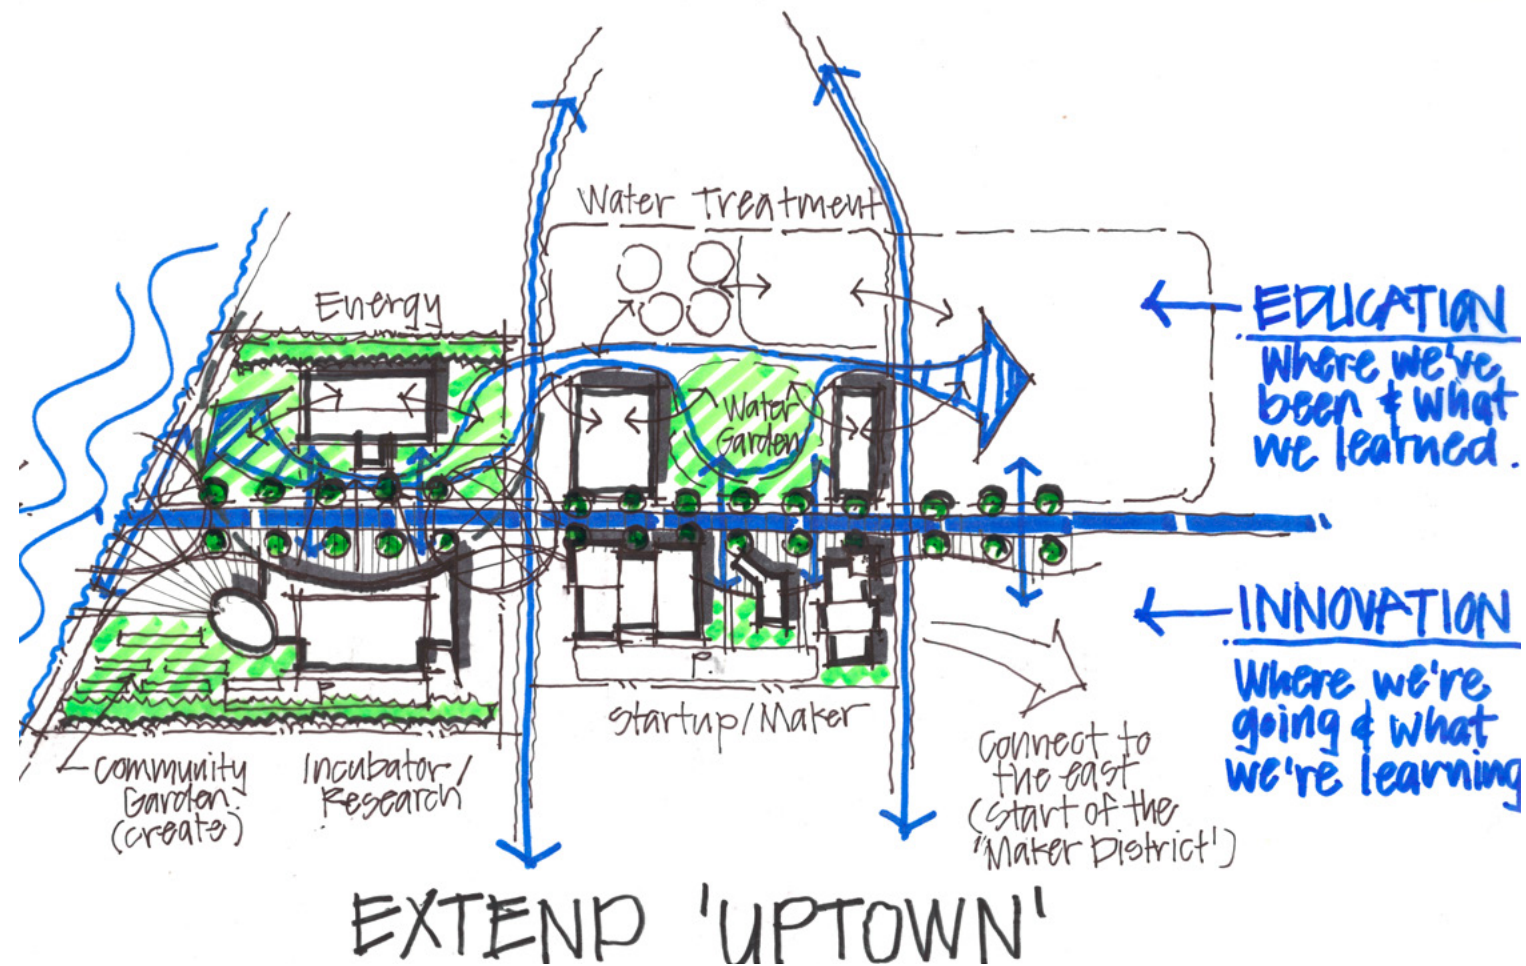 Water Treatment
Energy
EDUCATION
Where we've
been & what
we learned.
Water
Garden
INNOVATION
Where we're
going & what
we're learning
P.
P
Startup/Maker
Community
Garden.
(create)
Incubator/
Research
Connect to
the east
(Start of the
"Maker District')
EXTEND 'UPTOWN'